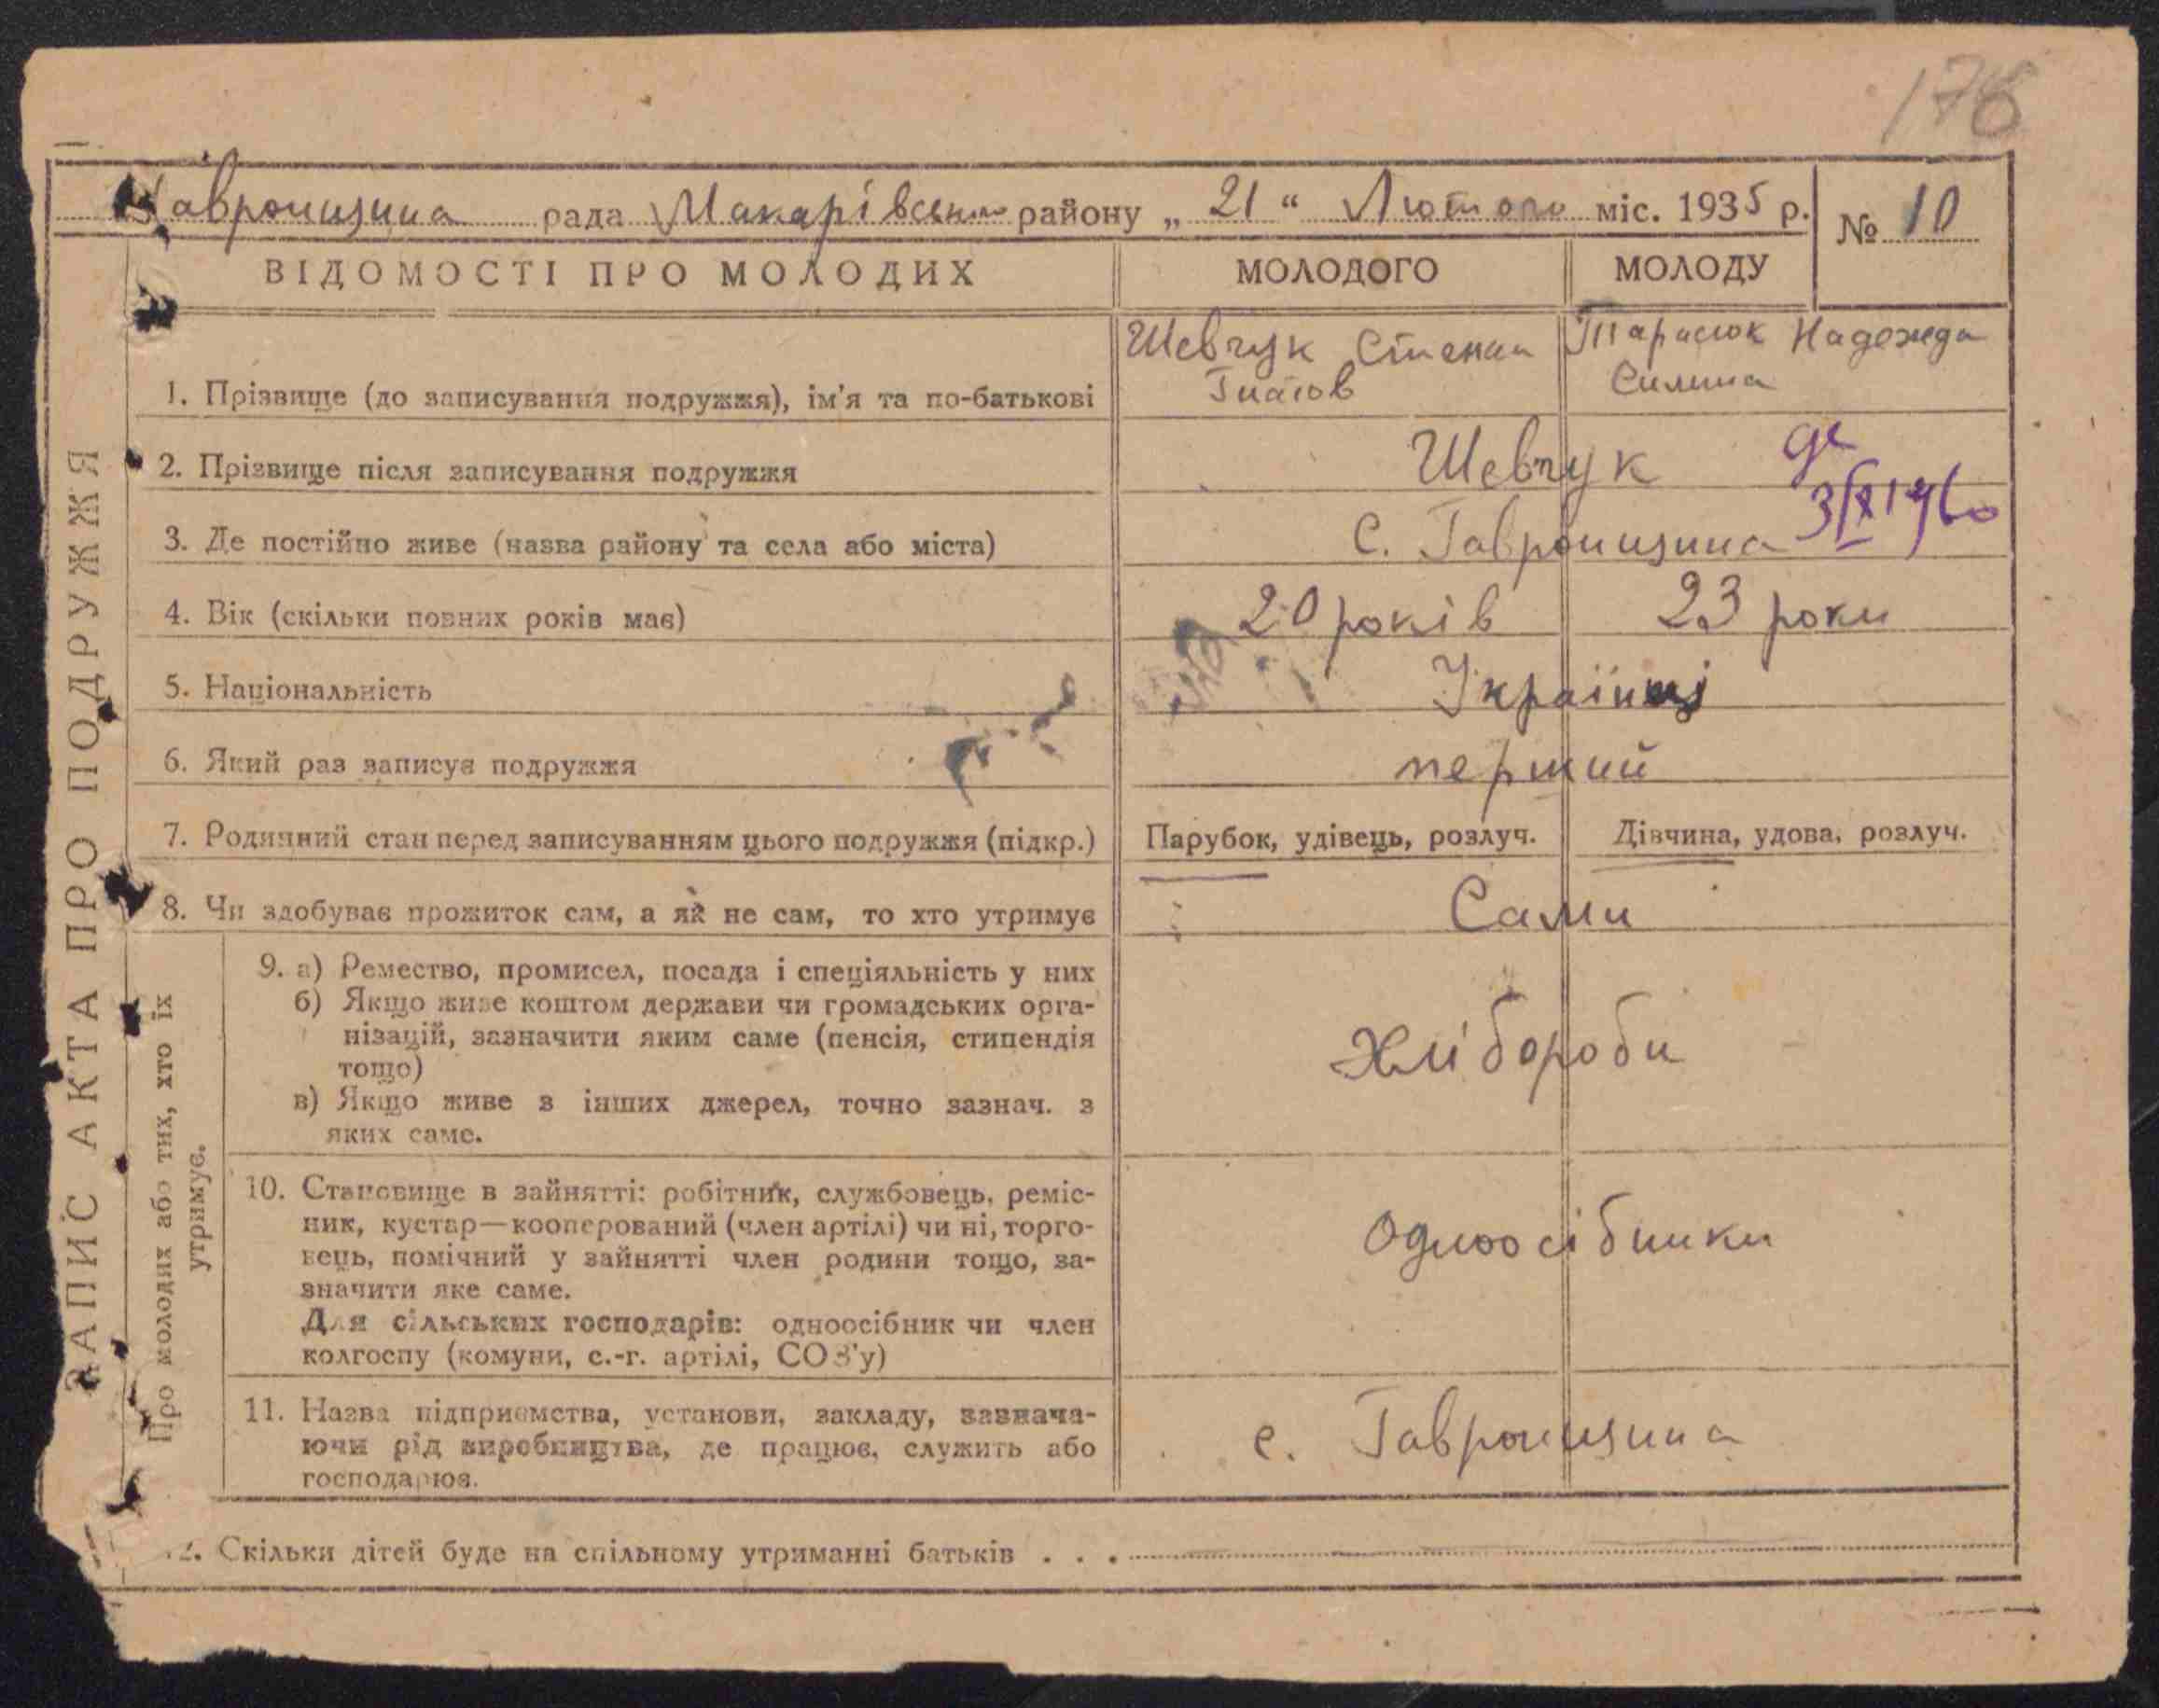 178
Гавронщина рада Макарівського району „ 21 “ Лютого міс. 1935 р. № 10
ВІДОМОСТІ ПРО МОЛОДИХ МОЛОДОГО МОЛОДУ
Шевчук Степан Тарасюк Надежда
1. Прізвище (до записування подружжя), ім'я та по-батькові Гнатов Силина
2. Прізвище після записування подружжя Шевчук
3/IX 1960
3. Де постійно живе (назва району та села або міста) С. Гавронщина
4. Вік (скільки повних років має) 20 років 23 роки
5. Національність Українці
6. Який раз записує подружжя перший
7. Родинний стан перед записуванням цього подружжя (підкр.) Парубок, удівець, розлуч. Дівчина, удова, розлуч.
8. Чи здобуває прожиток сам, а як не сам, то хто утримує Сами
9. а) Ремество, промисел, посада і спеціяльність у них
б) Якщо живе коштом держави чи громадських орга-
нізацій, зазначити яким саме (пенсія, стипендія
тощо)
в) Якщо живе з інших джерел, точно зазнач. з
яких саме.
Хлібороби
10. Становище в зайнятті: робітник, службовець, реміс-
ник, кустар—кооперований (член артілі) чи ні, торго-
вець, помічний у зайнятті член родини тощо, за-
значити яке саме.
Для сільських господарів: одноосібник чи член
колгоспу (комуни, с.-г. артілі, СОЗ'у)
Одноосібники
11. Назва підприємства, установи, закладу, зазнача-
ючи рід виробництва, де працює, служить або
господарює.
с. Гавронщина
12. Скільки дітей буде на спільному утриманні батьків . . .
ЗАПИС АКТА ПРО ПОДРУЖЖЯ
Про молодих або тих, хто їх
утримує.